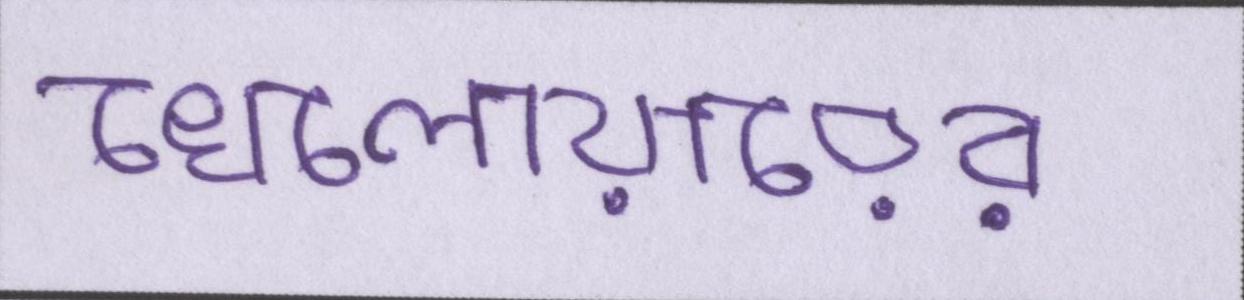 খেলোয়াড়ের